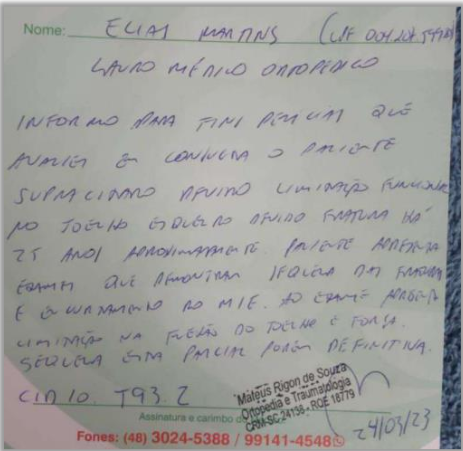 Nome: ELIAS MARTINS (CPF
LAUDO MÉDICO ORTOPEDICO
INFORMO PARA FINS PERICIAIS QUE
AVALIEI EM CONSULTA O PACIENTE
SUPRACITADO DEVIDO LIMITAÇÃO FUNCIONAL
NO JOELHO ESQUERDO DEVIDO FRATURA HÁ
25 ANOS APROXIMADAMENTE. PACIENTE APRESENTA
EXAMES QUE DEMONSTRAM SEQUELA DAS FRATURA
E ENCURTAMENTO DO MIE. AO EXAME APRESENTA
LIMITAÇÃO NA FLEXÃO DO JOELHO E FORÇA.
SEQUELA ESTA PARCIAL POREM DEFINITIVA.
CID 10 T93.2
Mateus Rigon de Souza
Ortopedia e Traumatologia
CRM-SC 24138 - RQE 18779
Assinatura e carimbo
24/03/23
Fones: (48) 3024-5388 / 99141-4548